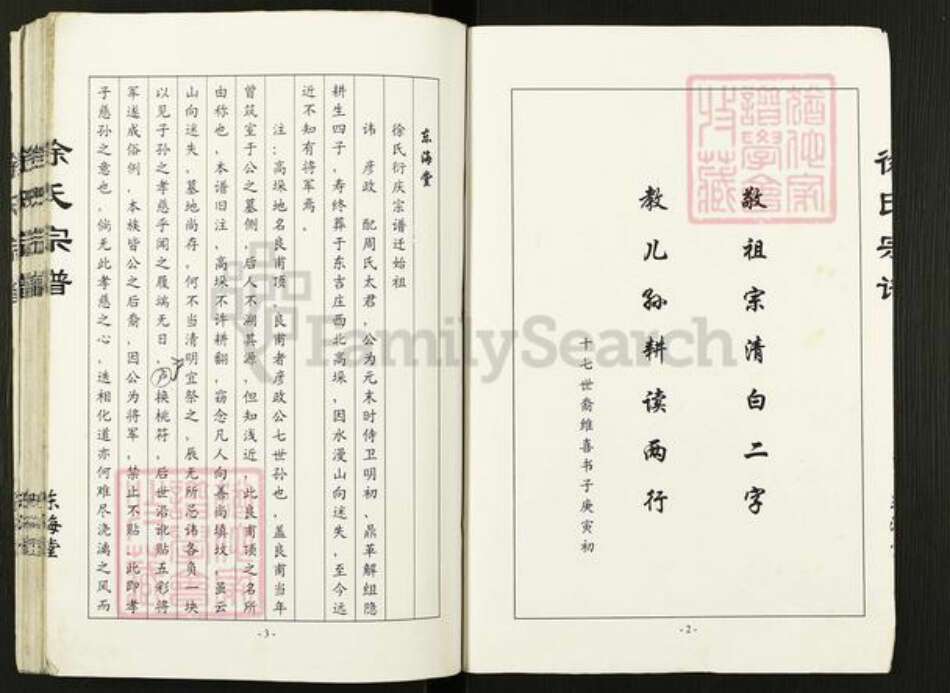 敬祖宗清白二字
教儿孙耕读两行
十七世裔维喜书于庚寅初
-2-
东海堂
徐氏衍庆宗谱迁始祖
讳 彦政 配周氏太君,公为元末时侍卫明初、鼎革解组隐
耕生四子,寿终葬于东吉庄西北高垛,因水漫山向迷失,至今远
近不知有将军焉。
注:高垛地名良甫顶,良甫者彦政公七世孙也,盖良甫当年
曾筑室于公之墓侧,后人不溯其源,但知浅近,此良甫顶之名所
由称也,本谱旧注,高垛不许耕翻,窃念凡人向善尚填坟,虽云
山向迷失,墓地尚存,何不当清明宜祭之,辰无所忌讳各负一块
以见子孙之孝慈乎闻之履端元日,户换桃符,后世沿讹贴五彩将
军遂成俗例,本族皆公之后裔,因公为将军,禁止不贴,此即孝
子慈孙之意也,倘无此孝慈之心,迭相化道亦何难尽浇漓之风而
-3-
徐氏宗谱
东海堂
谱学会
收藏
FamilySearch